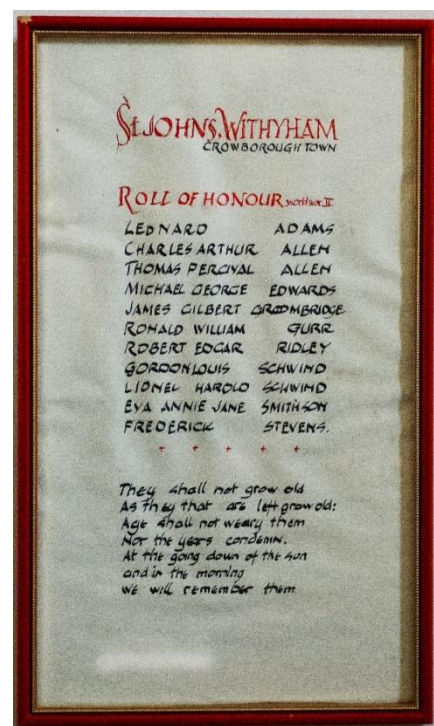 St JOHNS, WITHYHAM
CROWBOROUGH TOWN
ROLL OF HONOUR world war II
LEONARD ADAMS
CHARLES ARTHUR ALLEN
THOMAS PERCIVAL ALLEN
MICHAEL GEORGE EDWARDS
JAMES GILBERT GROOMBRIDGE
RONALD WILLIAM GURR
ROBERT EDGAR RIDLEY
GORDON LOUIS SCHWIND
LIONEL HAROLD SCHWIND
EVA ANNIE JANE SMITHSON
FREDERICK STEVENS.
+ + + + +
They shall not grow old
As they that are left grow old:
Age shall not weary them
Nor the years condemn.
At the going down of the sun
and in the morning
we will remember them